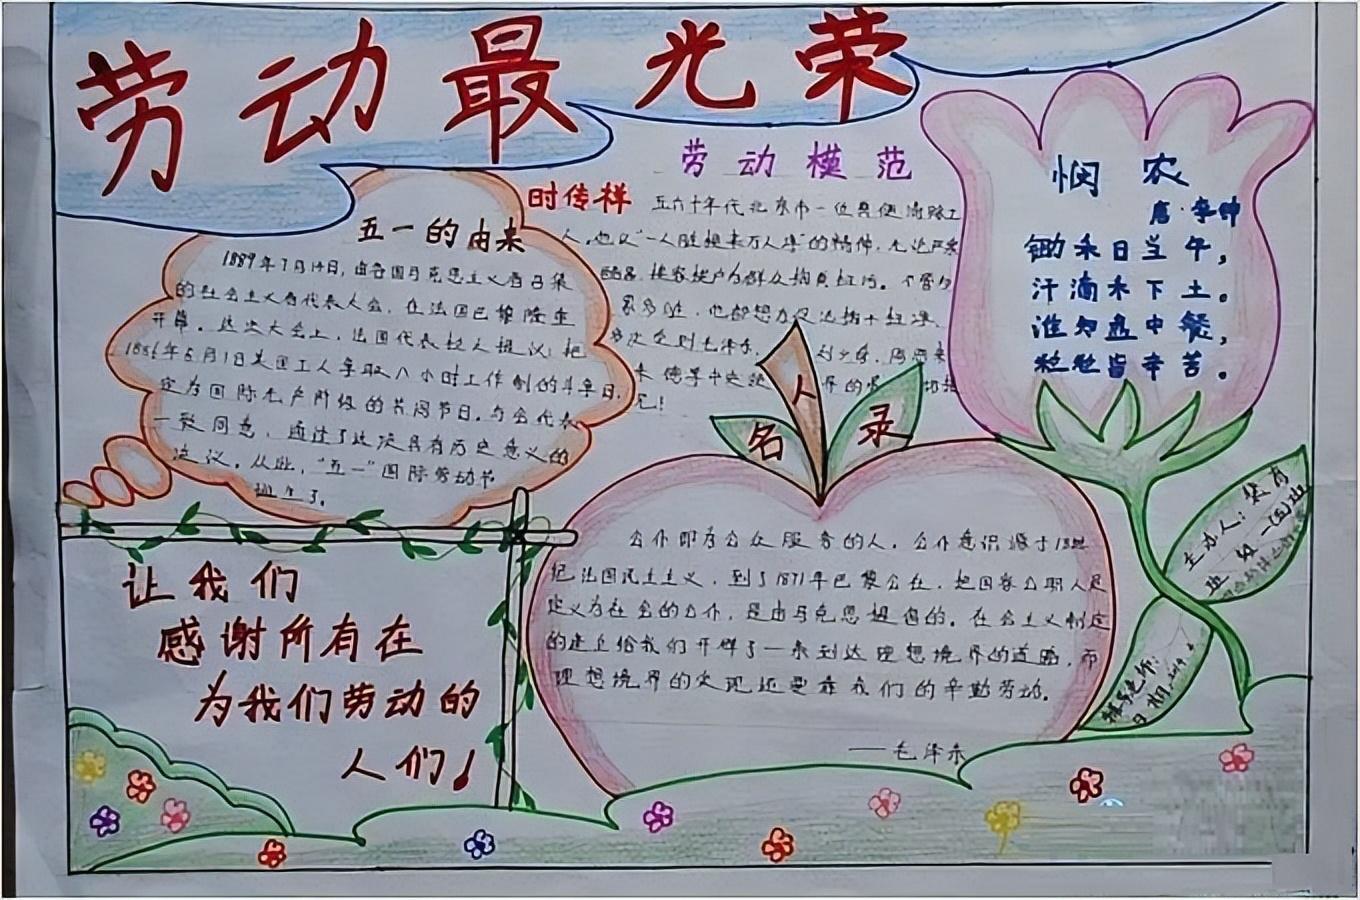 劳动最光荣
五一的由来
1889年7月14日，由各国马克思主义者召集
的社会主义者代表大会，在法国巴黎隆重
开幕。这次大会上，法国代表拉人提议：把
1886年5月1日美国工人争取八小时工作制的斗争日，
定为国际无产阶级的共同节日。与会代表
一致同意，通过了这次具有历史意义的
决议。从此，“五一”国际劳动节
诞生了。
劳动模范
时传祥
五六十年代北京市一位
人，他以“一人脏换来万人净”的精神，无论严寒
挨家挨户为群众
毛泽东
名人录
公仆即为公众服务的人。公仆意识源于
把法国民主主义，到了1871年巴黎公社，把国家公职人员
定义为社会的公仆，是由马克思提倡的。在社会主义制定
的建立给我们开辟了一条到达理想境界的道路，而
理想境界的实现还要靠我们的辛勤劳动。
——毛泽东
悯农
唐·李绅
锄禾日当午，
汗滴禾下土。
谁知盘中餐，
粒粒皆辛苦。
主办人：
班级
日期：
让我们
感谢所有在
为我们劳动的
人们！